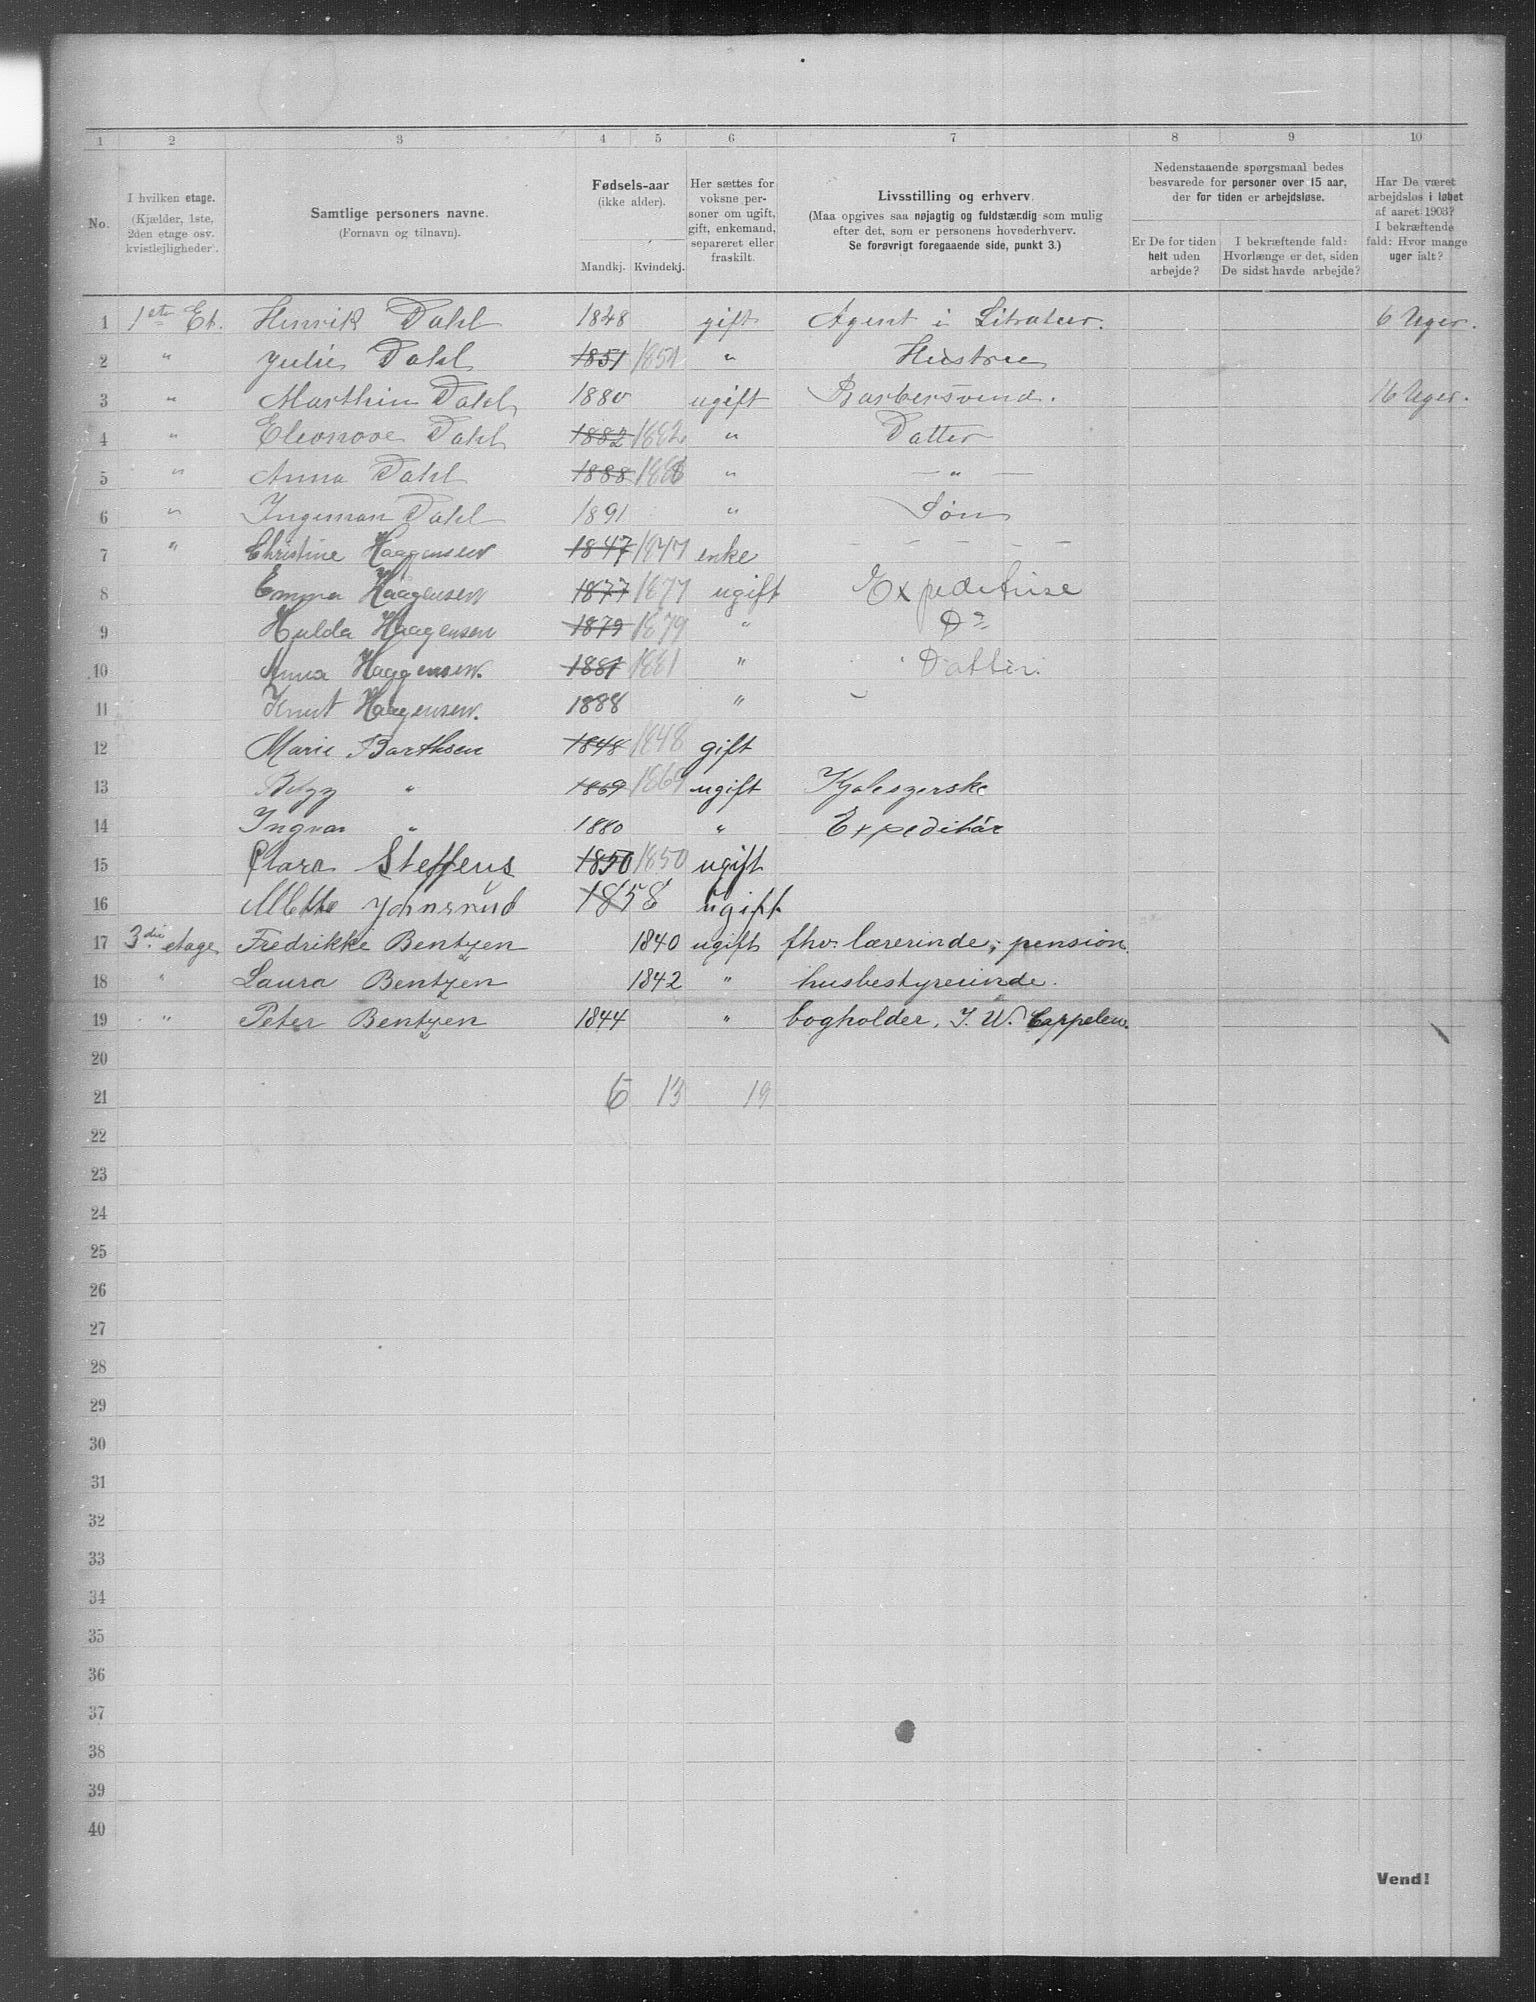 1 2 3 4 5 6 7 8 9 10
No.
I hvilken etage.
(Kjælder, 1ste, 2den etage osv. kvistlejligheder).
Samtlige personers navne.
(Fornavn og tilnavn).
Fødsels-aar
(ikke alder).
Mandkj. Kvindekj.
Her sættes for voksne personer om ugift, gift, enkemand, separeret eller fraskilt.
Livsstilling og erhverv.
(Maa opgives saa nøjagtig og fuldstændig som mulig efter det, som er personens hovederhverv.
Se forøvrigt foregaaende side, punkt 3.)
Nedenstaaende spørgsmaal bedes besvarede for personer over 15 aar, der for tiden er arbejdsløse.
Er De for tiden helt uden arbejde?
I bekræftende fald: Hvorlænge er det, siden De sidst havde arbejde?
Har De været arbejdsløs i løbet af aaret 1903? I bekræftende fald: Hvor mange uger ialt?
1 1ste Et. Henrik Dahl 1848 gift Agent i Litratur. 6 Uger.
2 " Julie Dahl 1851 1851 " Hustru
3 " Marthin Dahl 1880 ugift Barbersvend. 16 Uger.
4 " Eleonore Dahl 1882 1882 " Datter
5 " Anna Dahl 1888 1888 " — " —
6 " Ingeman Dahl 1891 " Søn
7 " Christine Haagensen 1847 1847 enke - - - - -
8 Emma Haagensen 1877 1877 ugift Expeditrise
9 Hulda Haagensen 1879 1879 " Do
10 Anna Haagensen. 1881 1881 " Datter.
11 Knut Haagensen. 1888 "
12 Marie Barthsen 1848 1848 gift
13 " 1869 1869 ugift Kjolesyerske
14 Ingvar " 1880 " Expeditør
15 Clara Steffens 1850 1850 ugift
16 Mette Johnsrud 1858 ugift.
17 3die etage Fredrikke Bentzen 1840 ugift fhv. lærerinde, pension.
18 " Laura Bentzen 1842 " husbestyrerinde.
19 " Peter Bentzen 1844 " bogholder, J. W. Cappelen.
20
21 6 13 19
22
23
24
25
26
27
28
29
30
31
32
33
34
35
36
37
38
39
40
Vend!